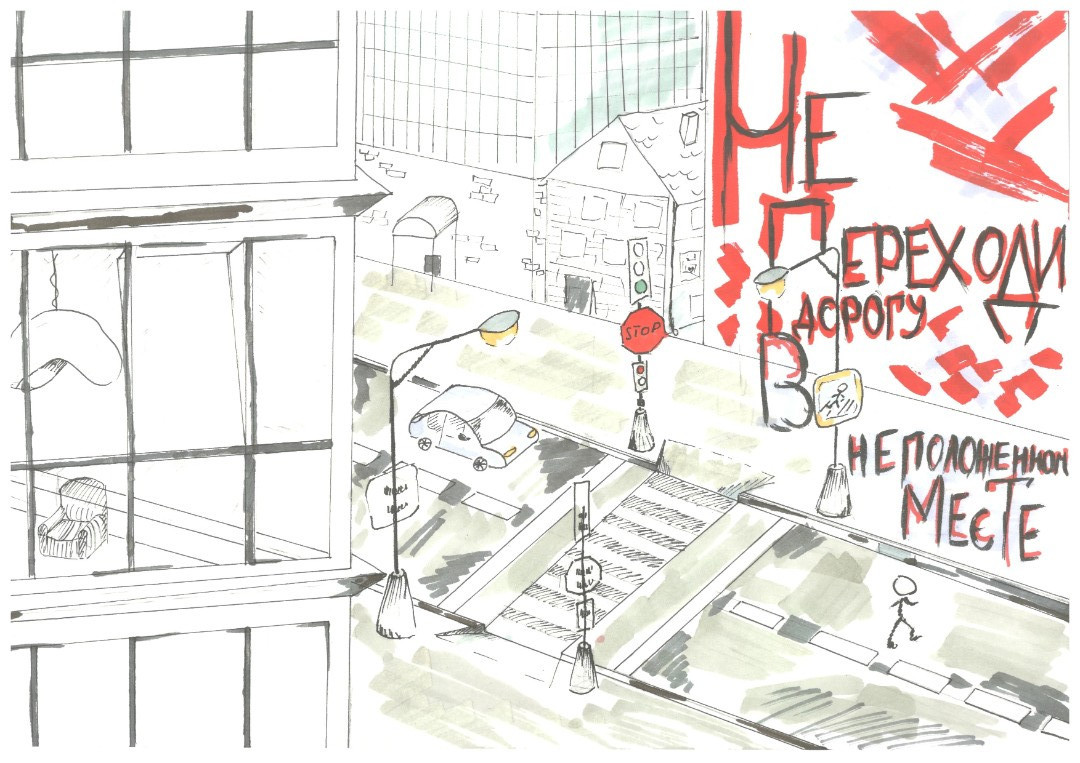 НЕ
ПЕРЕХОДИ
ДОРОГУ
В
НЕПОЛОЖЕННОМ
МЕСТЕ
STOP